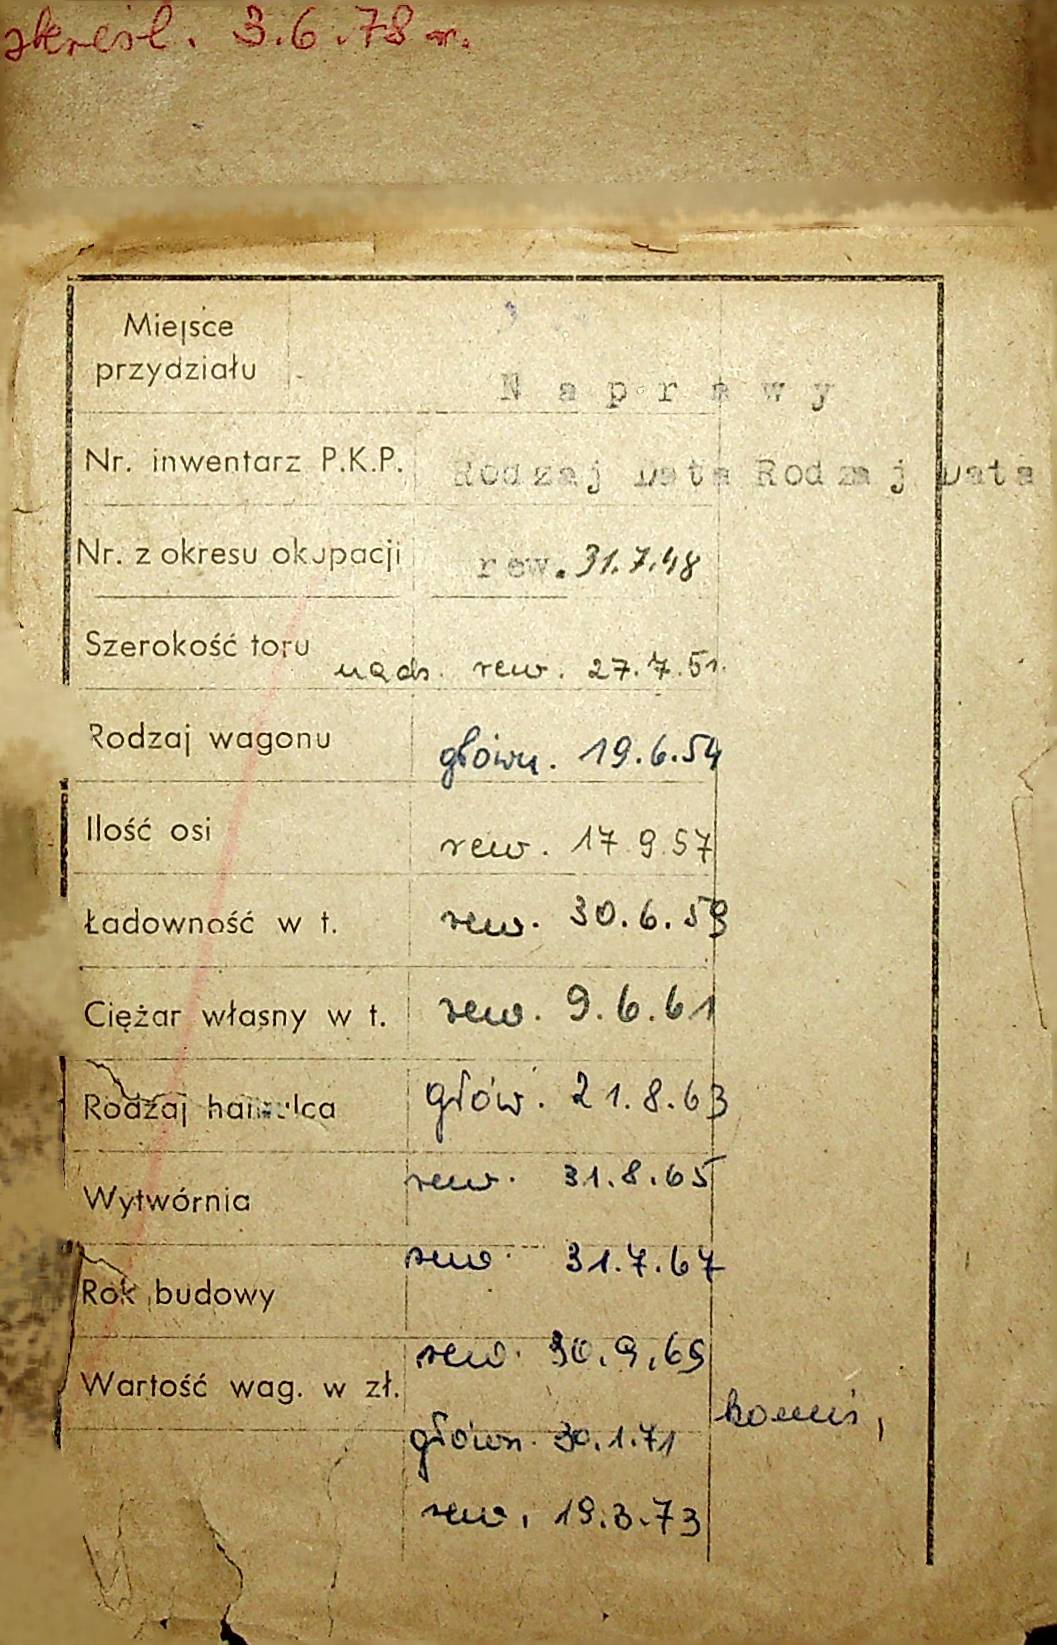 skreśl. 3.6.78 r.
Miejsce
przydziału
Naprawy
Nr. inwentarz P.K.P.
Rodzaj Data Rodzaj Data
Nr. z okresu okupacji
rew. 31.7.48
Szerokość toru
nads. rew. 27.7.51.
Rodzaj wagonu
główn. 19.6.54
Ilość osi
rew. 17.9.57
Ładowność w t.
rew. 30.6.59
Ciężar własny w t.
rew. 9.6.61
Rodzaj hamulca
głów. 21.8.63
Wytwórnia
rew. 31.8.65
rew. 31.7.67
Rok budowy
rew. 30.9.69
Wartość wag. w zł.
główn. 30.1.71
rew. 19.3.73